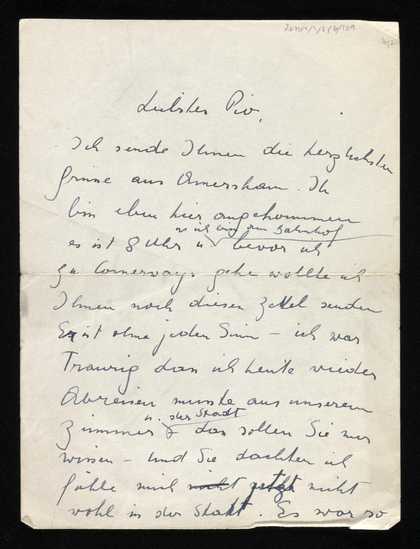 Liebster Pio,
Ich sende Ihnen die herzlichsten
Grüsse aus Amersham. Ich
bin eben hier angekommen
u ich bin am Bahnhof
es ist 8 Uhr u bevor ich
zu Cornerways gehe wollte ich
Ihnen noch diesen Zettel senden
Es ist ohne jeden Sinn – ich war
Traurig dass ich heute wieder
Abreisen musste aus unserem
u. der Stadt
Zimmer das sollen Sie nur
wissen – und Sie dachten ich
fühle mich nicht jetzt nicht
wohl in der Stadt. Es war so